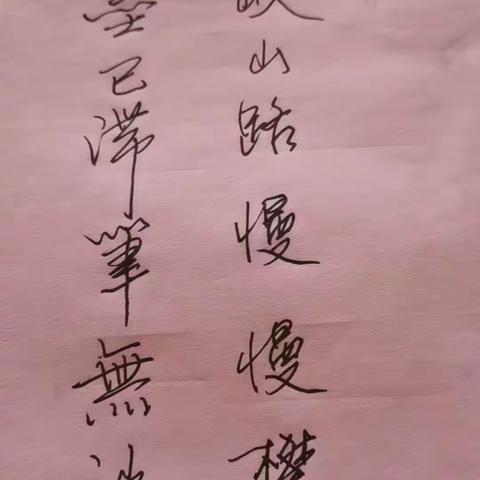 山路慢慢
墨已滞筆無